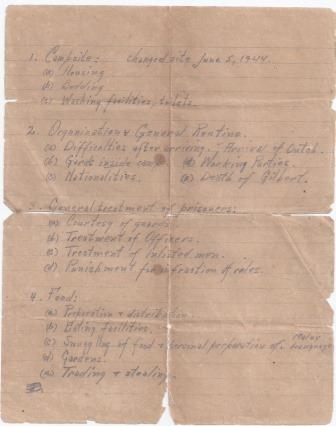 1. Campsite: changed site June 5, 1944.
(a) Housing
(b) Bedding
(c) Washing facilities, toilets.
2. Organization & General Routine.
(a) Difficulties after arriving. - Arrival of Dutch.
(b) Guards inside camp. (d) Working Parties.
(c) Nationalities. (e) Death of Gilbert.
3. General treatment of prisoners:
(a) Courtesy of guards.
(b) Treatment of Officers.
(c) Treatment of Enlisted men.
(d) Punishment for infraction of rules.
4. Food:
(a) Preparation & distribution.
(b) Eating facilities.
(c) Smuggling of food & personal preparation of. Malay language
(d) Gardens.
(e) Trading & stealing.